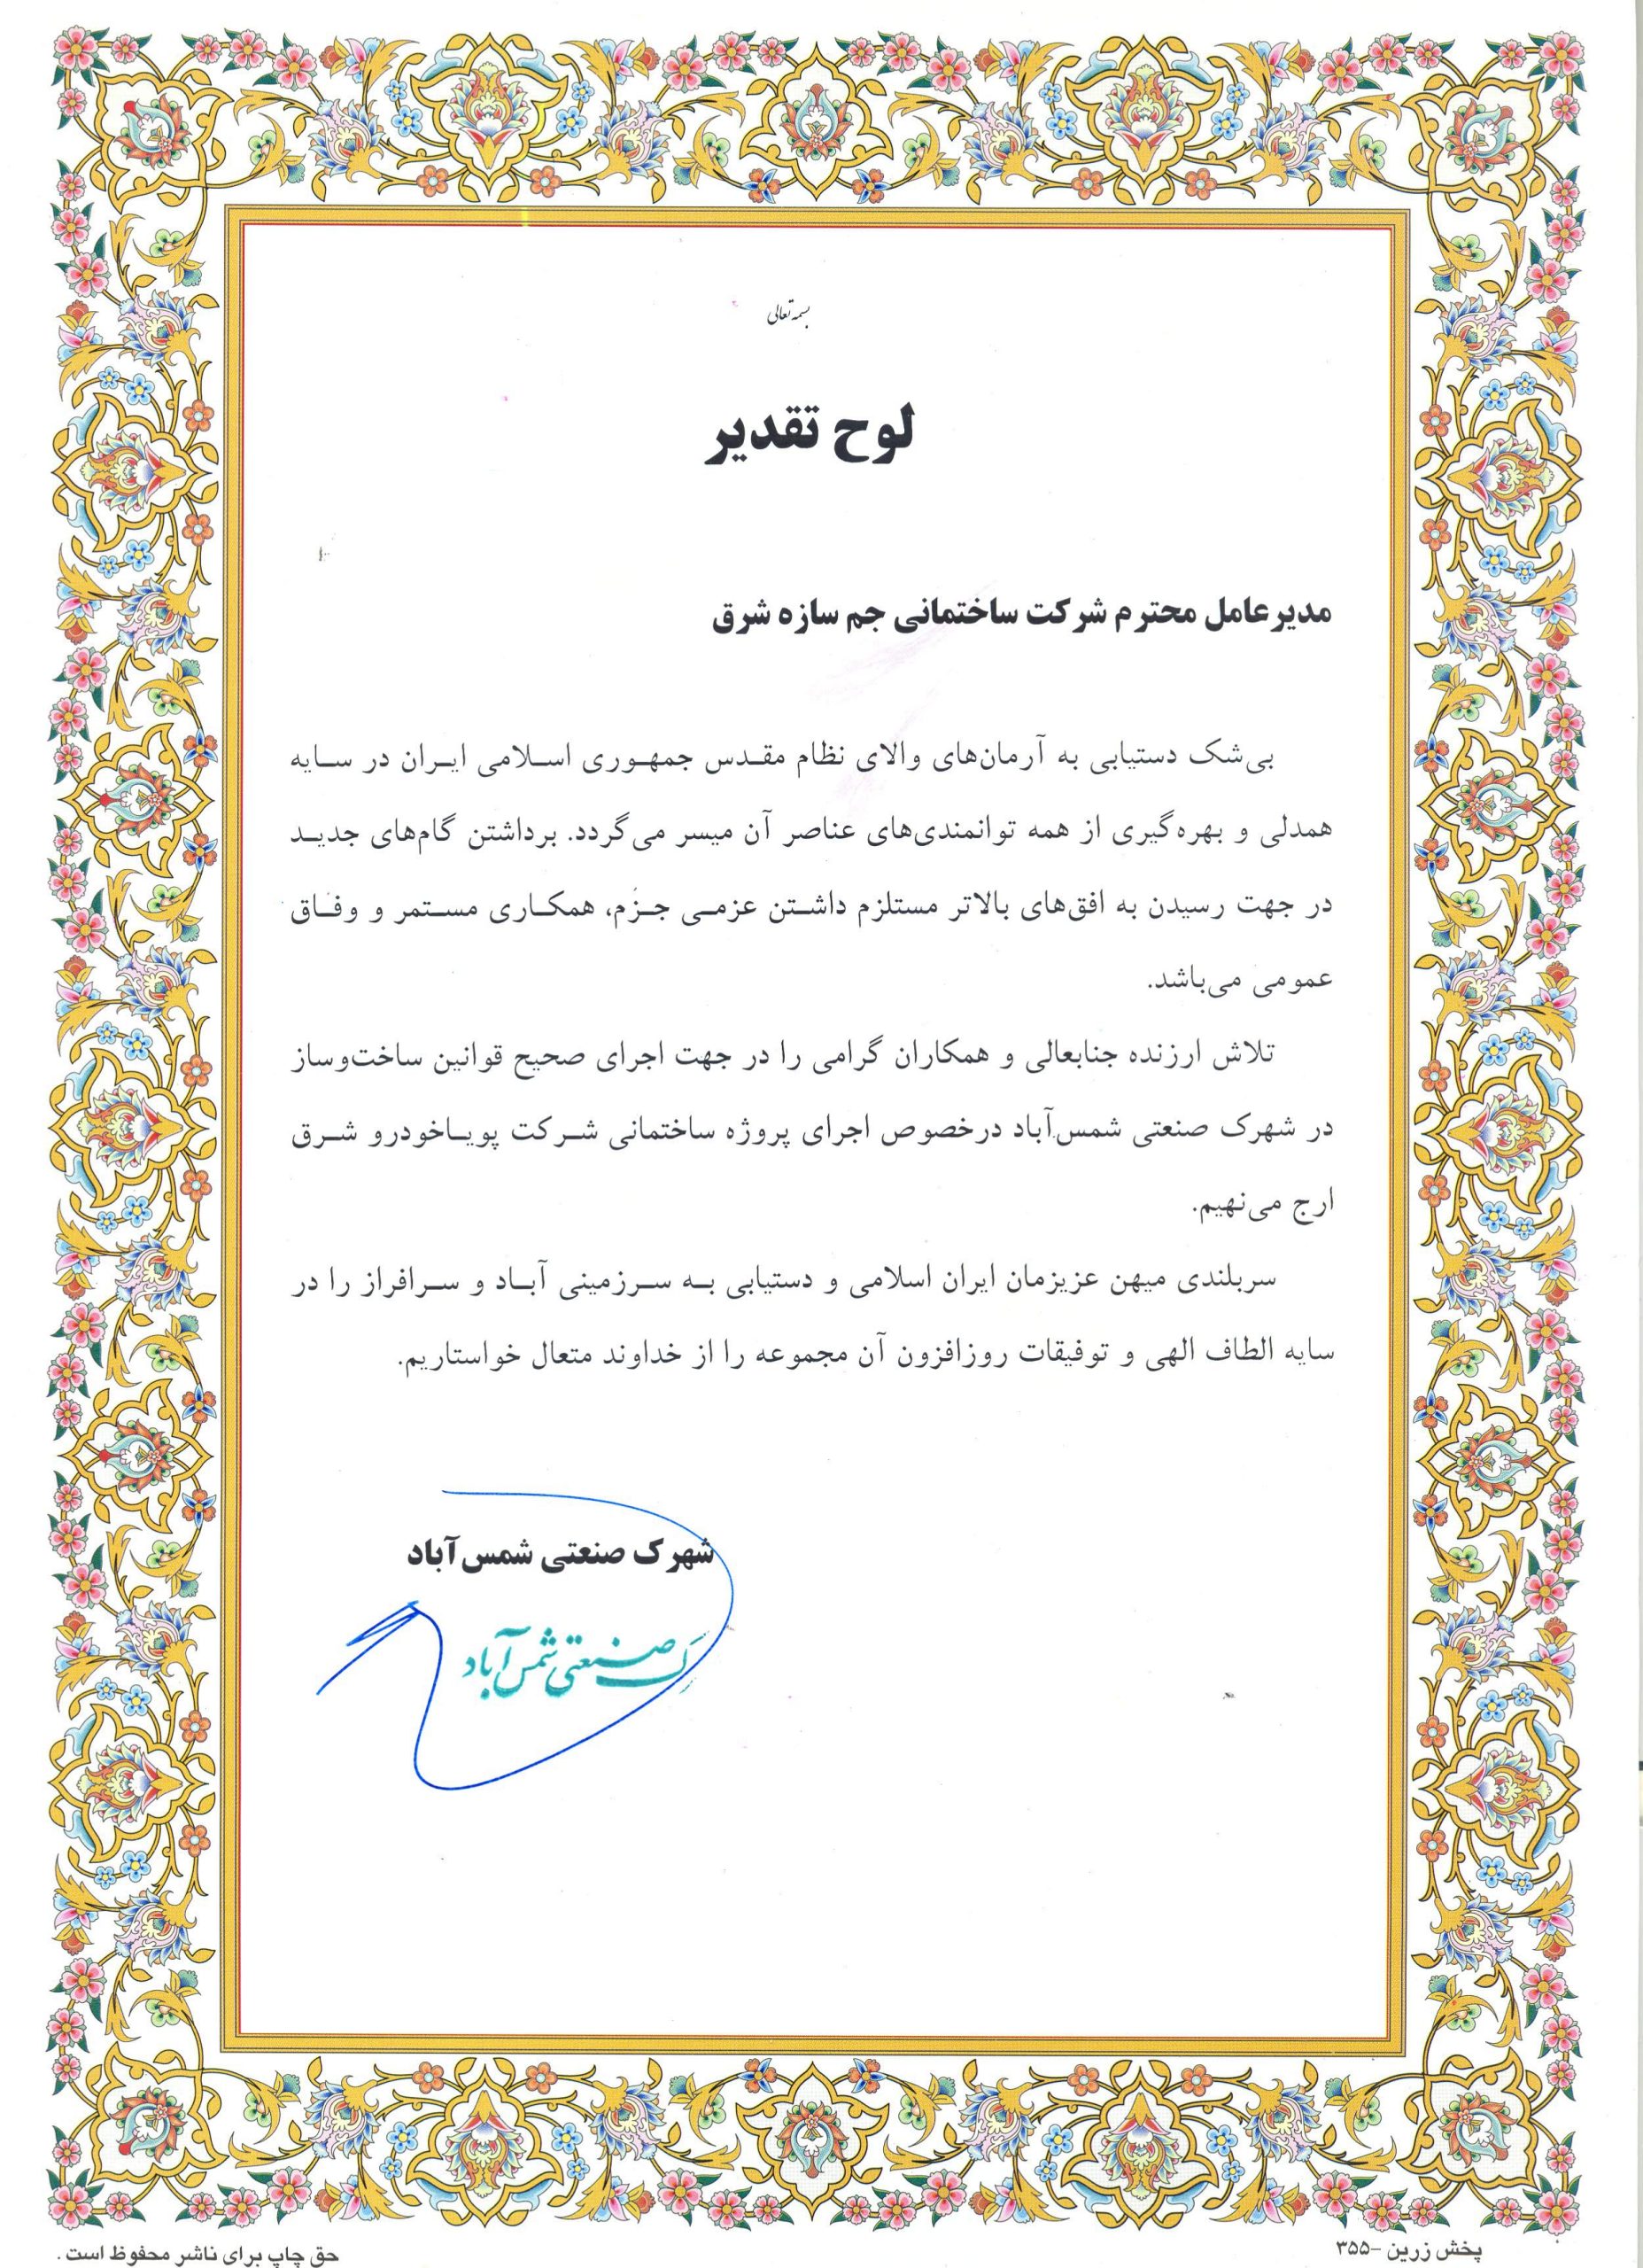 بسمه تعالی
لوح تقدیر
مدیرعامل محترم شرکت ساختمانی جم سازه شرق
بی‌شک دستیابی به آرمان‌های والای نظام مقدس جمهوری اسلامی ایران در سایه
همدلی و بهره‌گیری از همه توانمندی‌های عناصر آن میسر می‌گردد. برداشتن گام‌های جدید
در جهت رسیدن به افق‌های بالاتر مستلزم داشتن عزمی جزم، همکاری مستمر و وفاق
عمومی می‌باشد.
تلاش ارزنده جنابعالی و همکاران گرامی را در جهت اجرای صحیح قوانین ساخت‌وساز
در شهرک صنعتی شمس‌آباد درخصوص اجرای پروژه ساختمانی شرکت پویاخودرو شرق
ارج می‌نهیم.
سربلندی میهن عزیزمان ایران اسلامی و دستیابی به سرزمینی آباد و سرافراز را در
سایه الطاف الهی و توفیقات روزافزون آن مجموعه را از خداوند متعال خواستاریم.
شهرک صنعتی شمس‌آباد
ک صنعتی شمس‌آباد
پخش زرین -۳۵۵
حق چاپ برای ناشر محفوظ است .